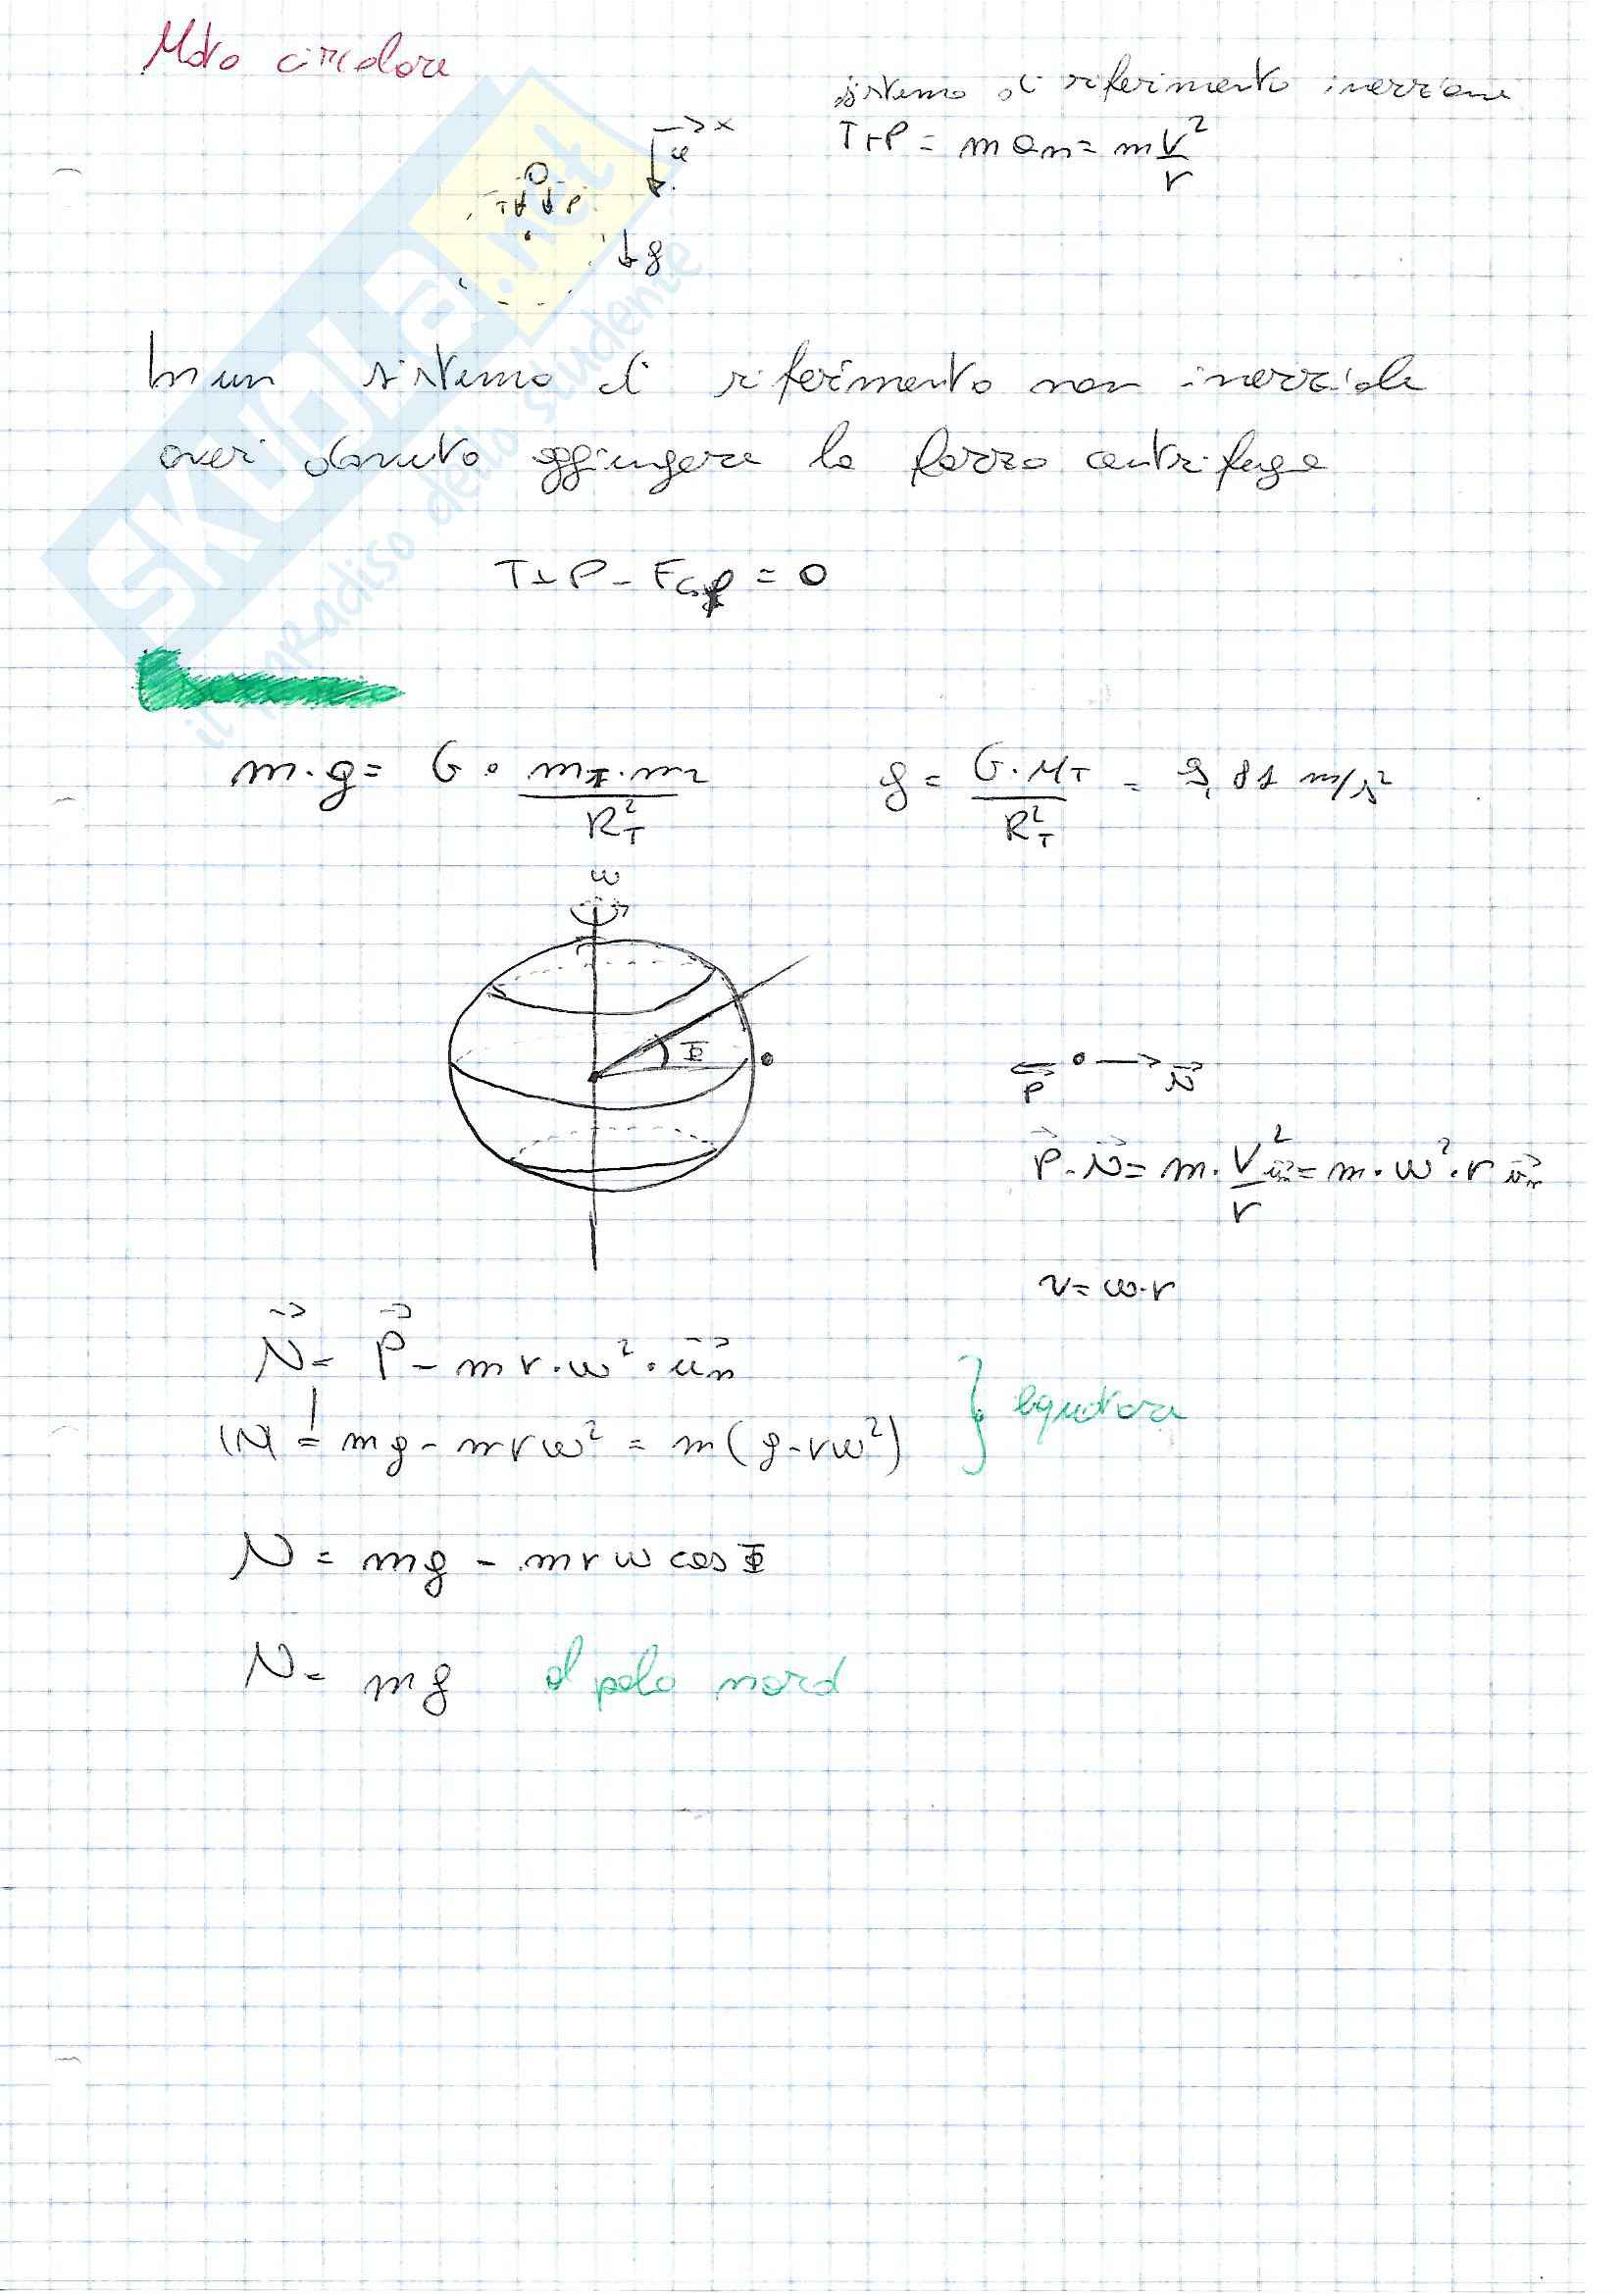 Moto circolare
sistema di riferimento inerziale
→ x
u
T+P = m an = m V²/r
T P
g
In un sistema di riferimento non inerziale
avrei dovuto aggiungere la forza centrifuga
T+P-Fc.f = 0
SKUOLA.net
il paradiso dello studente
m·g = G · mT·m2/R²T
g = G·MT/R²T = 9,81 m/s²
ω
Φ
P N
P-N = m·V²/r un = m·ω²·r un
v = ω·r
N = P - mr·ω²·un
|N| = mg - mrω² = m(g-rω²)
equatore
N = mg - mrω cosΦ
N = mg al polo nord